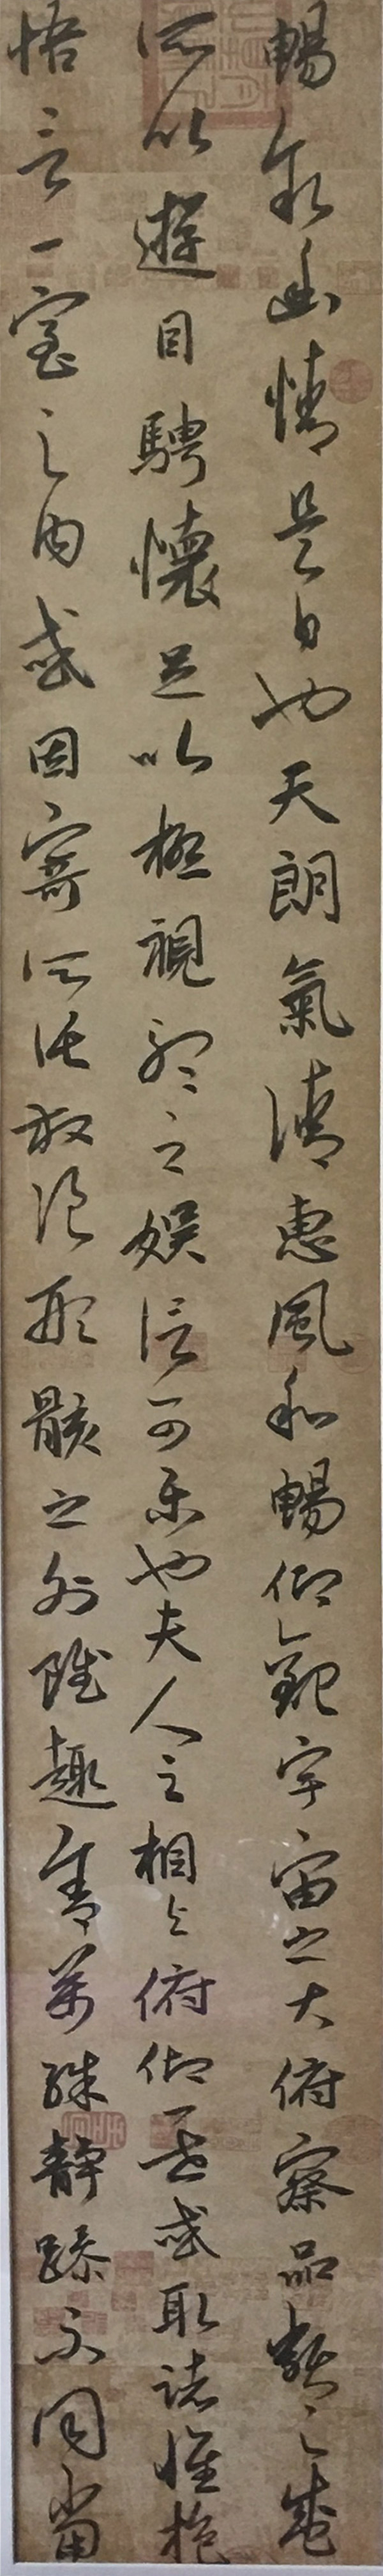 暢叙幽情是日也天朗氣清惠風和暢仰觀宇宙之大俯察品類之盛
所以遊目騁懷足以極視聽之娱信可樂也夫人之相與俯仰一世或取諸懷抱
悟言一室之内或因寄所託放浪形骸之外雖趣舍萬殊静躁不同當